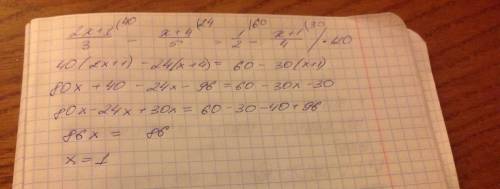 (2x+1)/3 ⁽⁴⁰ - (x+4)/5 ⁽²⁴ = 1/2 ⁽⁶⁰ - (x+1)/4 ⁽³⁰ / ·120
40(2x+1) - 24(x+4) = 60 - 30(x+1)
80x + 40 - 24x - 96 = 60 - 30x - 30
80x - 24x + 30x = 60 - 30 - 40 + 96
86x = 86
x = 1